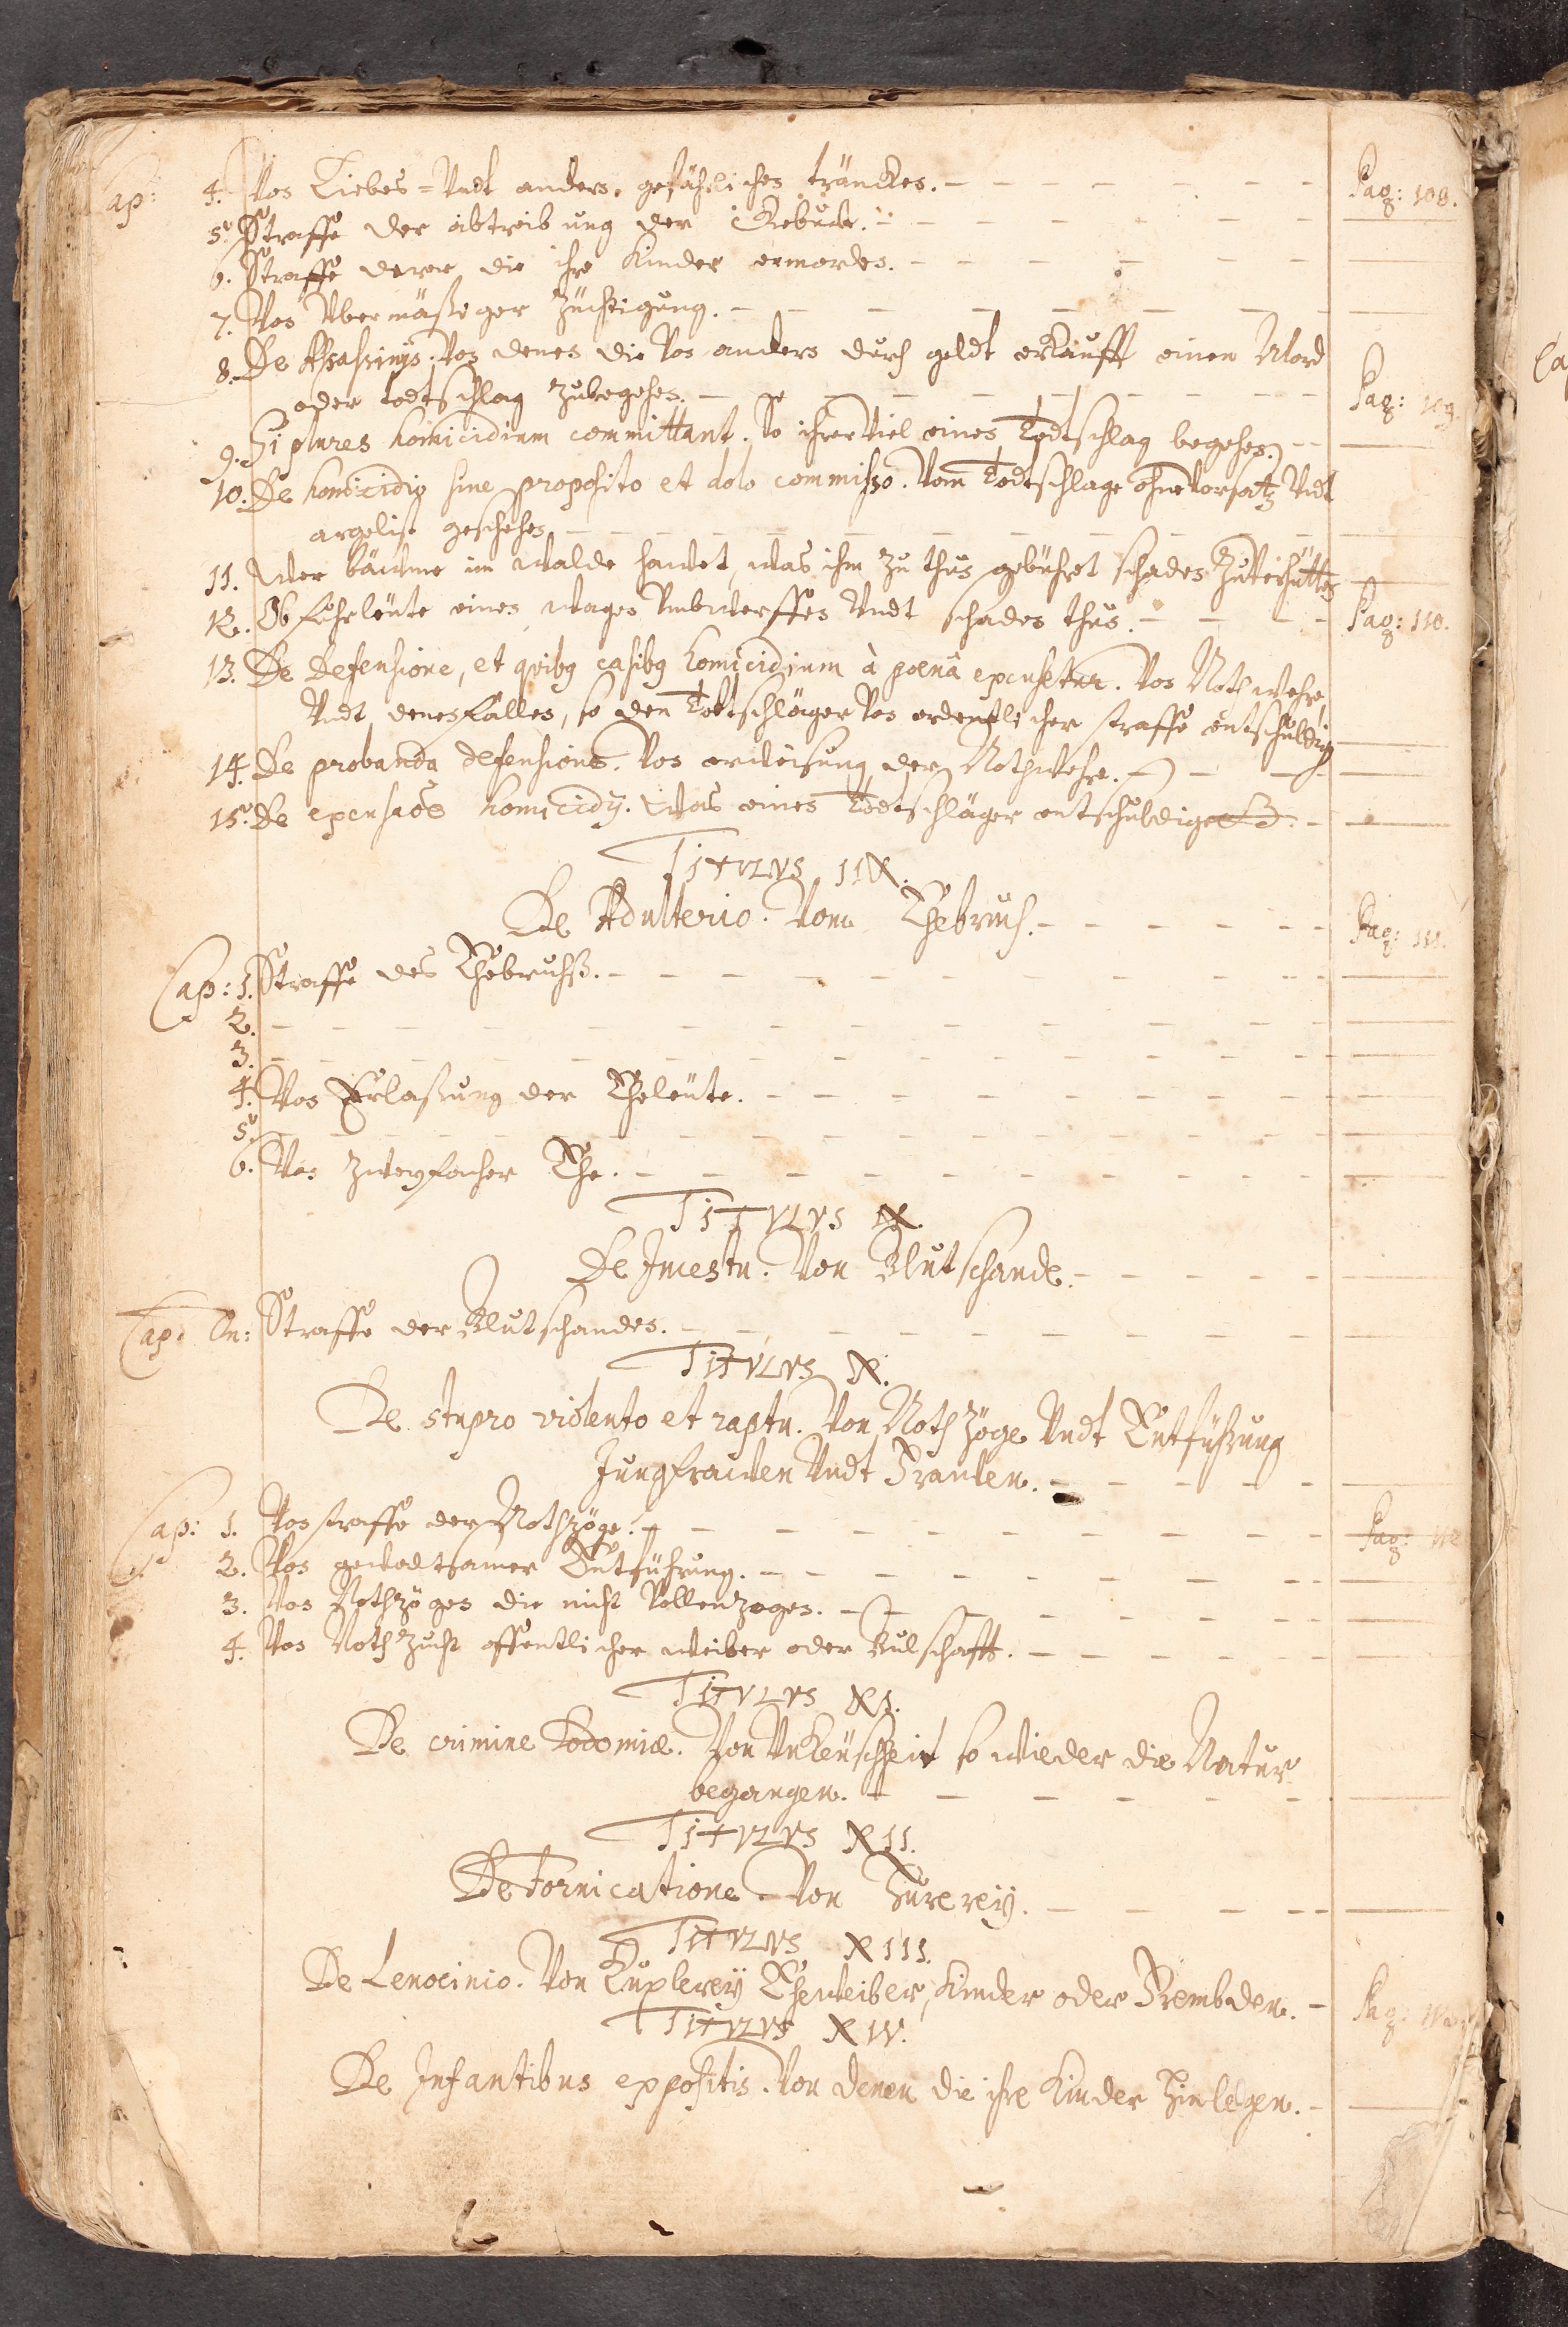 Cap: 4. Von Liebes= Undt andern gefährlichen träncken. Pag: 108.
5. Straffe der abtreibung der Gebuhrt.
6. Straffe derer die ihre Kinder ermorden.
7. Von Übermäßiger Züchtigung.
8. De Assassinijs. Von denen die Von andern durch geldt erkaufft einen Mord
oder todtschlag zubegehen. Pag: 109.
9. Si plures homicidium committant. So ihrer Viel einen Todtschlag begehen.
10. De homicidio sine proposito et dolo commisso. Vom Todtschlage ohne Vorsatz Undt
argelist geschehen
11. Wer bäume im walde hawet, was ihm zu thun gebühret schaden Zuverhütten
12. Ob fuhrleüte einen wagen Umbwerffen Undt schaden thun. Pag: 110.
13. De Defensione, et quibq casibq homicidium à poenâ excusetur. Von Nothwehre,
Undt denen fällen, so den Todtschläger Von ordentlicher straffe entschuldig
14. De probanda defensione. Von erweisung der Nothwehre.
15. De excusaõe homicidij. Was einen Todtschläger entschuldige
TITVLVS IIX.
De Adulterio. Vom Ehebruch. Pag: 111.
Cap: 1. Straffe des Ehebruchß.
2.
3.
4. Von Verlaßung der Eheleüte.
5.
6. Von Zweyfacher Ehe.
TITVLVS IX.
De Incestu. Von Blutschande.
Cap: Un: Straffe der Blutschanden.
TITVLVS X.
De stupro violento et raptu. Von Nothzöge Undt Entführung
Jungfrawen Undt Frawen.
Cap: 1. Von straffe der Nothzöge. Pag: 112
2. Von gewaltsamer Entführung.
3. Von Nothzögen die nicht Vollenzogen.
4. Von Nothzucht offentlicher weiber oder Bulschafft.
TITVLVS XI.
De crimine Sodomiæ. Von Unkeüschheit so wieder die Natur
begangen.
TITVLVS XII.
De Fornicatione. Von Hurerey.
TITVLVS XIII.
De Lenocinio. Von Kuplerey Eheweiber, Kinder oder Frembden. Pag:
TITVLVS XIV.
De Infantibus expositis. Von denen die ihre Kinder hinlegen.